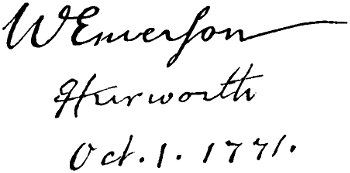 W Emerson
Hurworth
Oct. 1. 1771.